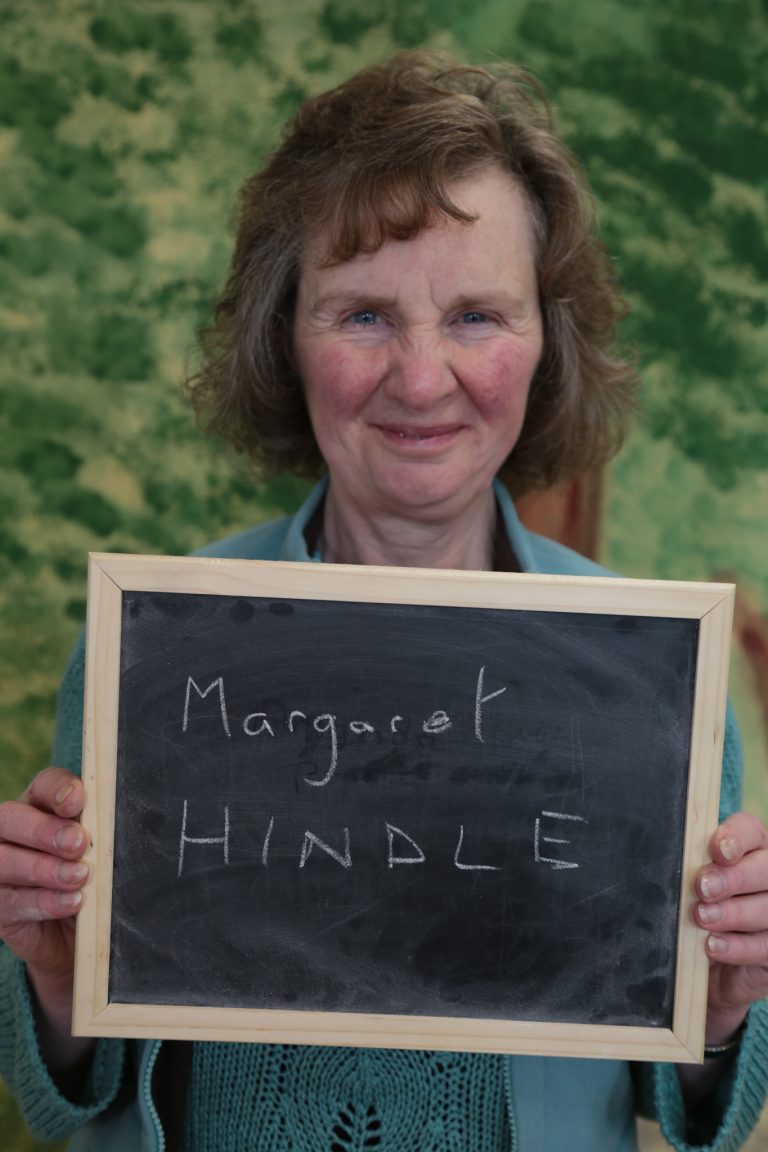 Margaret
HINDLE